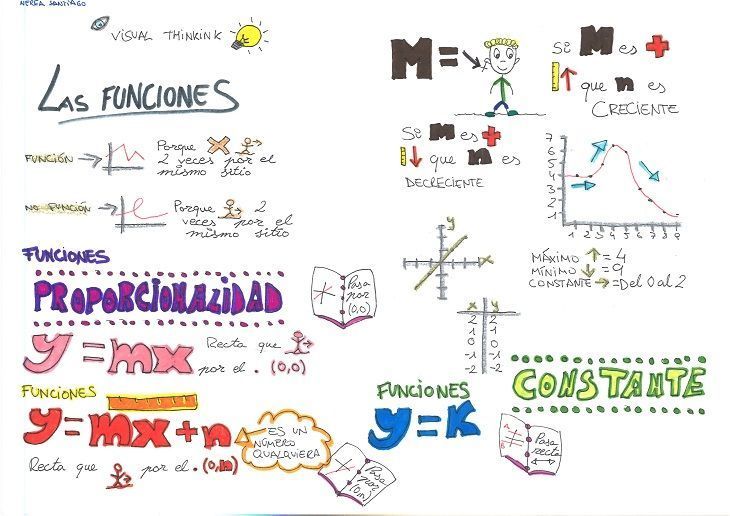 NEREA SANTIAGO
VISUAL THINKINK
LAS FUNCIONES
FUNCIÓN
Porque
2 veces por el
mismo sitio
NO FUNCIÓN
Porque 2
veces por el
mismo sitio
FUNCIONES
PROPORCIONALIDAD
Pasa
por
(0,0)
y=mx
Recta que
por el . (0,0)
FUNCIONES
y=mx+n
ES UN
NÚMERO
QUALQUIERA
Recta que por el . (0,n)
Pasa
por
(0,n)
M =
Si M es +
que n es
CRECIENTE
Si M es +
que n es
DECRECIENTE
7
6
5
4
3
2
1
1 2 3 4 5 6 7 8 9
MÁXIMO = 4
MÍNIMO = 9
CONSTANTE = Del 0 al 2
y
x
x y
2 2
1 1
0 0
-1 -1
-2 -2
FUNCIONES
CONSTANTE
y=K
Pasa
recta